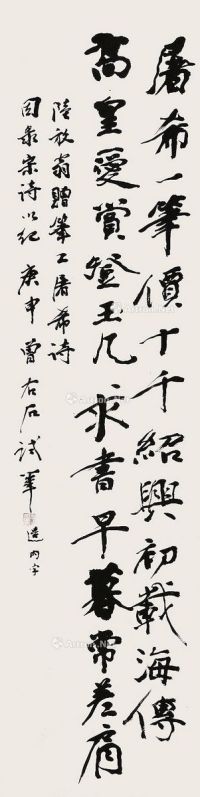 屠希一筆價十千紹興初載海傳
高皇愛賞登玉几求書早暮常差肩
陸放翁贈筆工屠希詩
因錄宋詩以紀 庚申 曾右石試筆
造內字